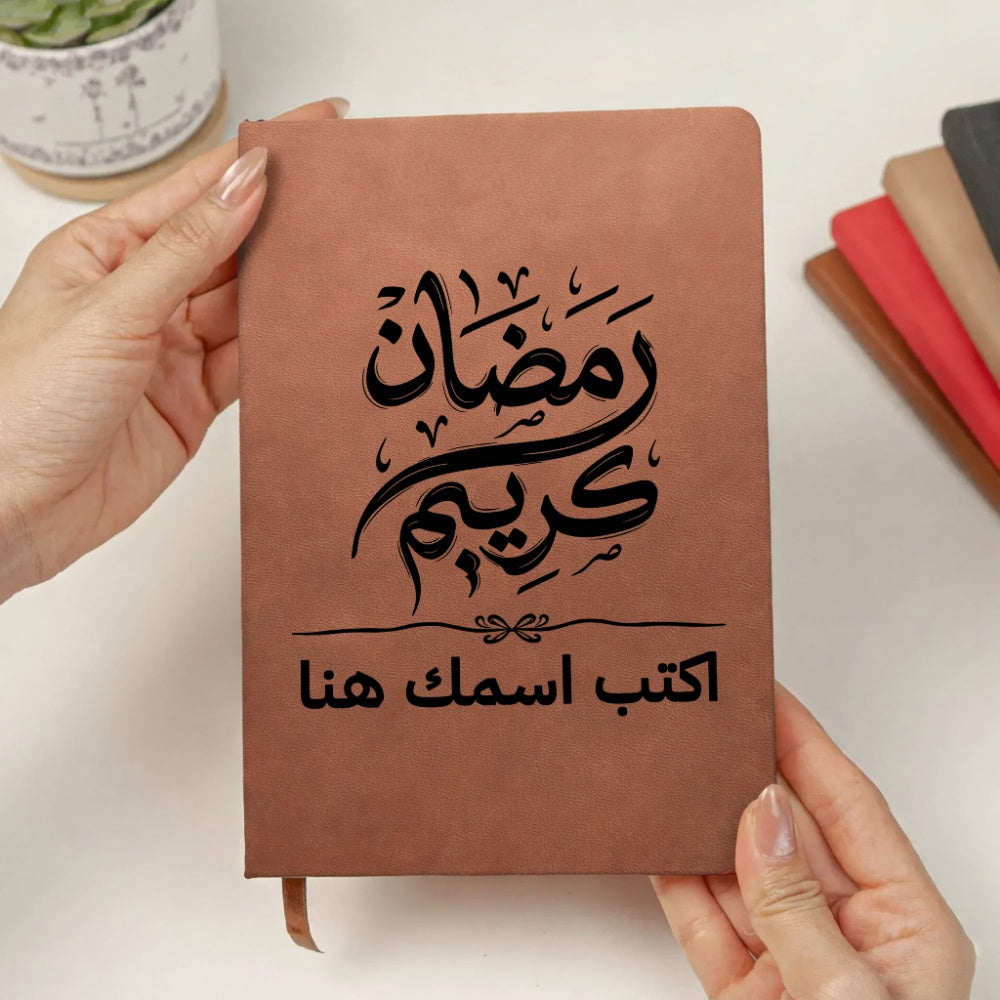 رَمَضَانْ
كَرِيم
اكتب اسمك هنا